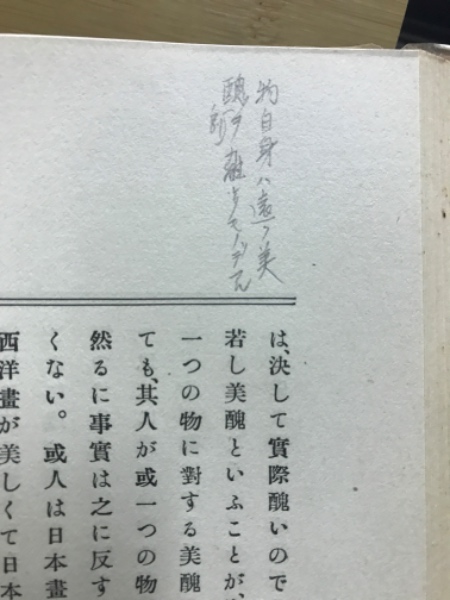 物自身ハ遠ク美
醜ヲ離レタモノデアル
は、決して實際醜いので
若し美醜といふことが、
一つの物に對する美醜
ても、其人が或一つの物
然るに事實は之に反す
くない。或人は日本畫
西洋畫が美しくて日本